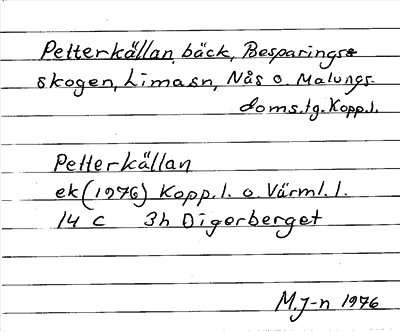 Pelterkällan, bäck, Besparings-
skogen, Lima sn, Nås o. Malungs
doms.tg. Kopp.l.
Pelterkällan
ek (1976) Kopp.l. o. Värml.l.
14 C 3h Digerberget
M.J-n 1976